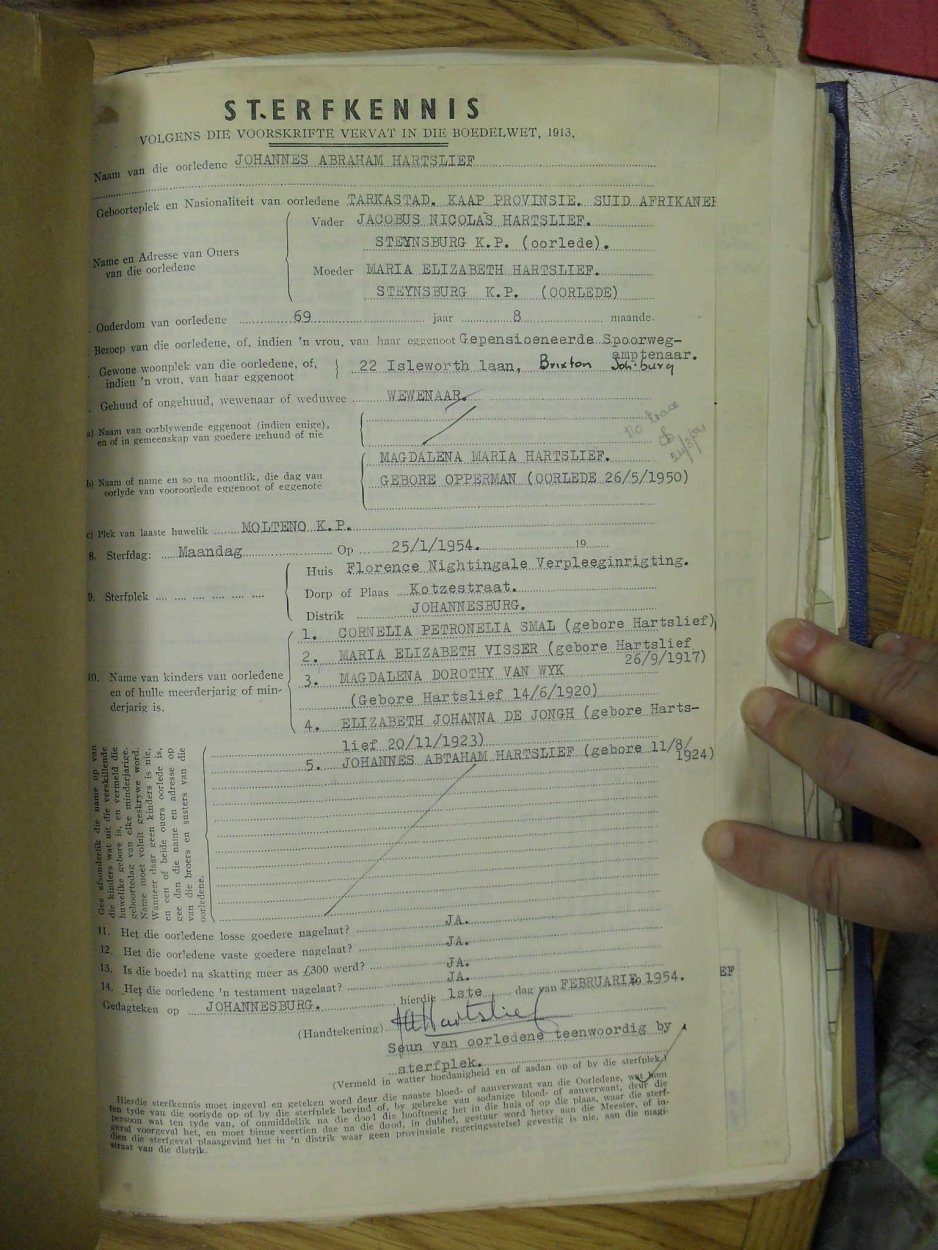 STERFKENNIS
VOLGENS DIE VOORSKRIFTE VERVAT IN DIE BOEDELWET, 1913.
Naam van die oorledene JOHANNES ABRAHAM HARTSLIEF
Geboorteplek en Nasionaliteit van oorledene TARKASTAD. KAAP PROVINSIE. SUID AFRIKANER
Name en Adresse van Ouers van die oorledene
Vader JACOBUS NICOLAS HARTSLIEF.
STEYNSBURG K.P. (oorlede).
Moeder MARIA ELIZABETH HARTSLIEF.
STEYNSBURG K.P. (OORLEDE)
Ouderdom van oorledene 69 jaar 8 maande.
Beroep van die oorledene, of, indien 'n vrou, van haar eggenoot Gepensioeneerde Spoorweg-
amptenaar.
Gewone woonplek van die oorledene, of,
indien 'n vrou, van haar eggenoot
22 Isleworth laan, Brixton Joh'burg
Gehuud of ongehuud, wewenaar of weduwee WEWENAAR.
a) Naam van oorblywende eggenoot (indien enige),
en of in gemeenskap van goedere gehuud of nie
No trace
b) Naam of name en so na moontlik, die dag van
oorlyde van vooroorlede eggenoot of eggenote
MAGDALENA MARIA HARTSLIEF.
GEBORE OPPERMAN (OORLEDE 26/5/1950)
c) Plek van laaste huwelik MOLTENO K.P.
8. Sterfdag: Maandag Op 25/1/1954. 19
9. Sterfplek
Huis Florence Nightingale Verpleeginrigting.
Dorp of Plaas Kotzestraat.
Distrik JOHANNESBURG.
10. Name van kinders van oorledene
en of hulle meerderjarig of min-
derjarig is.
1. CORNELIA PETRONELIA SMAL (gebore Hartslief)
2. MARIA ELIZABETH VISSER (gebore Hartslief
26/9/1917)
3. MAGDALENA DOROTHY VAN WYK
(Gebore Hartslief 14/6/1920)
4. ELIZABETH JOHANNA DE JONGH (gebore Harts-
lief 20/11/1923)
5. JOHANNES ABTAHAM HARTSLIEF (gebore 11/8/
1924)
Gee afsonderlik die name op van
die kinders wat uit die verskillende
huwelike gebore is, en vermeld die
geboortedag van elke minderjarige.
Name moet voluit geskrywe word.
Wanneer daar geen kinders is nie,
en een of beide ouers oorlede is,
gee dan die name en adresse op
van die broers en susters van die
oorledene.
11. Het die oorledene losse goedere nagelaat? JA.
12. Het die oorledene vaste goedere nagelaat? JA.
13. Is die boedel na skatting meer as £300 werd? JA.
14. Het die oorledene 'n testament nagelaat? JA.
Gedagteken op JOHANNESBURG. hierdie 1ste dag van FEBRUARIE 1954.
EF
(Handtekening) Hartslief
Seun van oorledene teenwoordig by
sterfplek.
(Vermeld in watter hoedanigheid en of asdan op of by die sterfplek.)
Hierdie sterfkennis moet ingevul en geteken word deur die naaste bloed- of aanverwant van die Oorledene, wat hom
ten tyde van die oorlyde op of by die sterfplek bevind of, by gebreke van sodanige bloed- of aanverwant, deur die
persoon wat ten tyde van, of onmiddellik na die dood die hooftoesig het in die huis of op die plaas, waar die sterf-
geval voorgeval het, en moet binne veertien dae na die dood, in dubbel, gestuur word hetsy aan die Meester, of in-
dien die sterfgeval plaasgevind het in 'n distrik waar geen provinsiale regeringsstelsel gevestig is nie, aan die magi-
straat van die distrik.